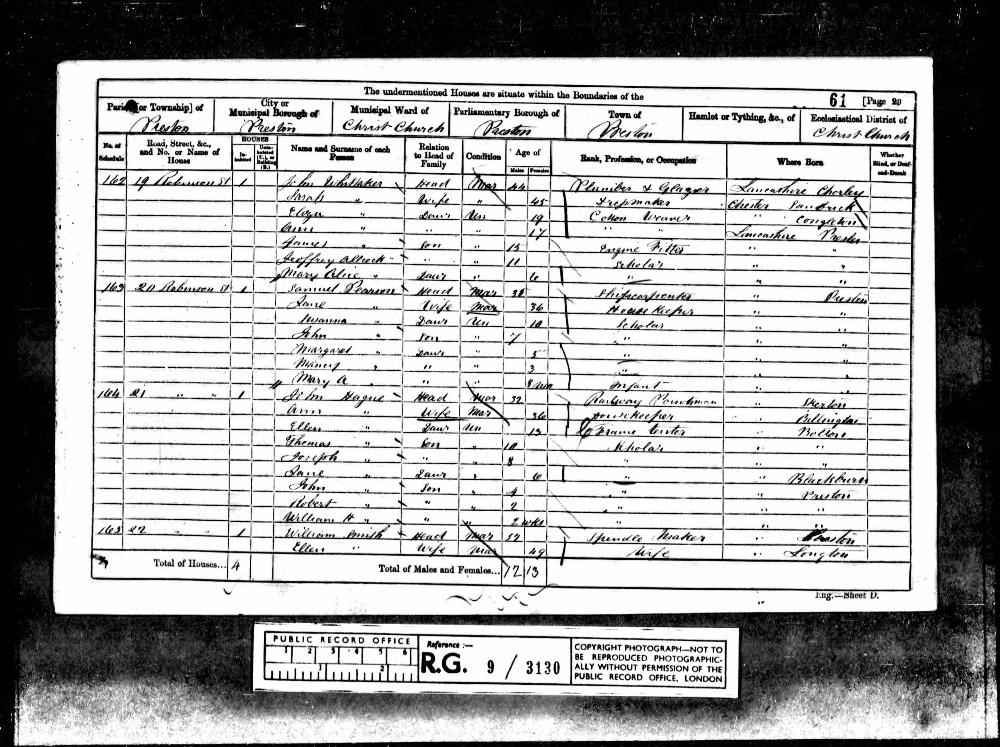 The undermentioned Houses are situate within the Boundaries of the
61 [Page 29
Parish [or Township] of
Preston
City or Municipal Borough of
Preston
Municipal Ward of
Christ Church
Parliamentary Borough of
Preston
Town of
Preston
Hamlet or Tything, &c., of
Ecclesiastical District of
Christ Church
No. of Schedule Road, Street, &c., and No. or Name of House HOUSES Inhabited Uninhabited (U.), or Building (B.) Name and Surname of each Person Relation to Head of Family Condition Age of Males Females Rank, Profession, or Occupation Where Born Whether Blind, or Deaf-and-Dumb
162 19 Robinson St 1 John Whittaker Head Mar 44 Plumber & Glazier Lancashire Chorley
Sarah " Wife " 45 Chester
Eliza " Daur Un 19 Cotton Weaver " Congleton
Ann " " " 17 " " Lancashire Preston
James " Son " 15 Engine Fitter " "
Geoffrey " " 11 Scholar " "
Mary Alice " Daur " 6 " " "
163 20 Robinson St 1 Samuel Pearson Head Mar 38 Shipcarpenter " Preston
Jane " Wife Mar 36 House Keeper " "
" Daur Un 10 Scholar " "
John " Son " 7 " " "
Margaret " Daur " 5 " " "
" " " 3 " " "
Mary A " " " 8 mo Infant " "
164 21 " " 1 John Hague Head Mar 32 Railway Pointsman " Skerton
Ann " Wife Mar 36 Housekeeper " Billington
Ellen " Daur Un 13 Frame Tenter " Bolton
Thomas " Son " 10 Scholar " "
Joseph " " " 8 " " "
Jane " Daur " 6 " " Blackburn
John " Son " 4 " " Preston
Robert " " " 2 " " "
William H " " " 2 wks " " "
165 22 " " 1 William Smith Head Mar 52 Spindle Maker "
Ellen " Wife Mar 49 Wife " Longton
Total of Houses... 4 Total of Males and Females... 12 13
Eng.—Sheet D.
PUBLIC RECORD OFFICE
1 2 3 4 5 6
1 2
Reference :—
R.G. 9 / 3130
COPYRIGHT PHOTOGRAPH—NOT TO
BE REPRODUCED PHOTOGRAPHIC-
ALLY WITHOUT PERMISSION OF THE
PUBLIC RECORD OFFICE, LONDON